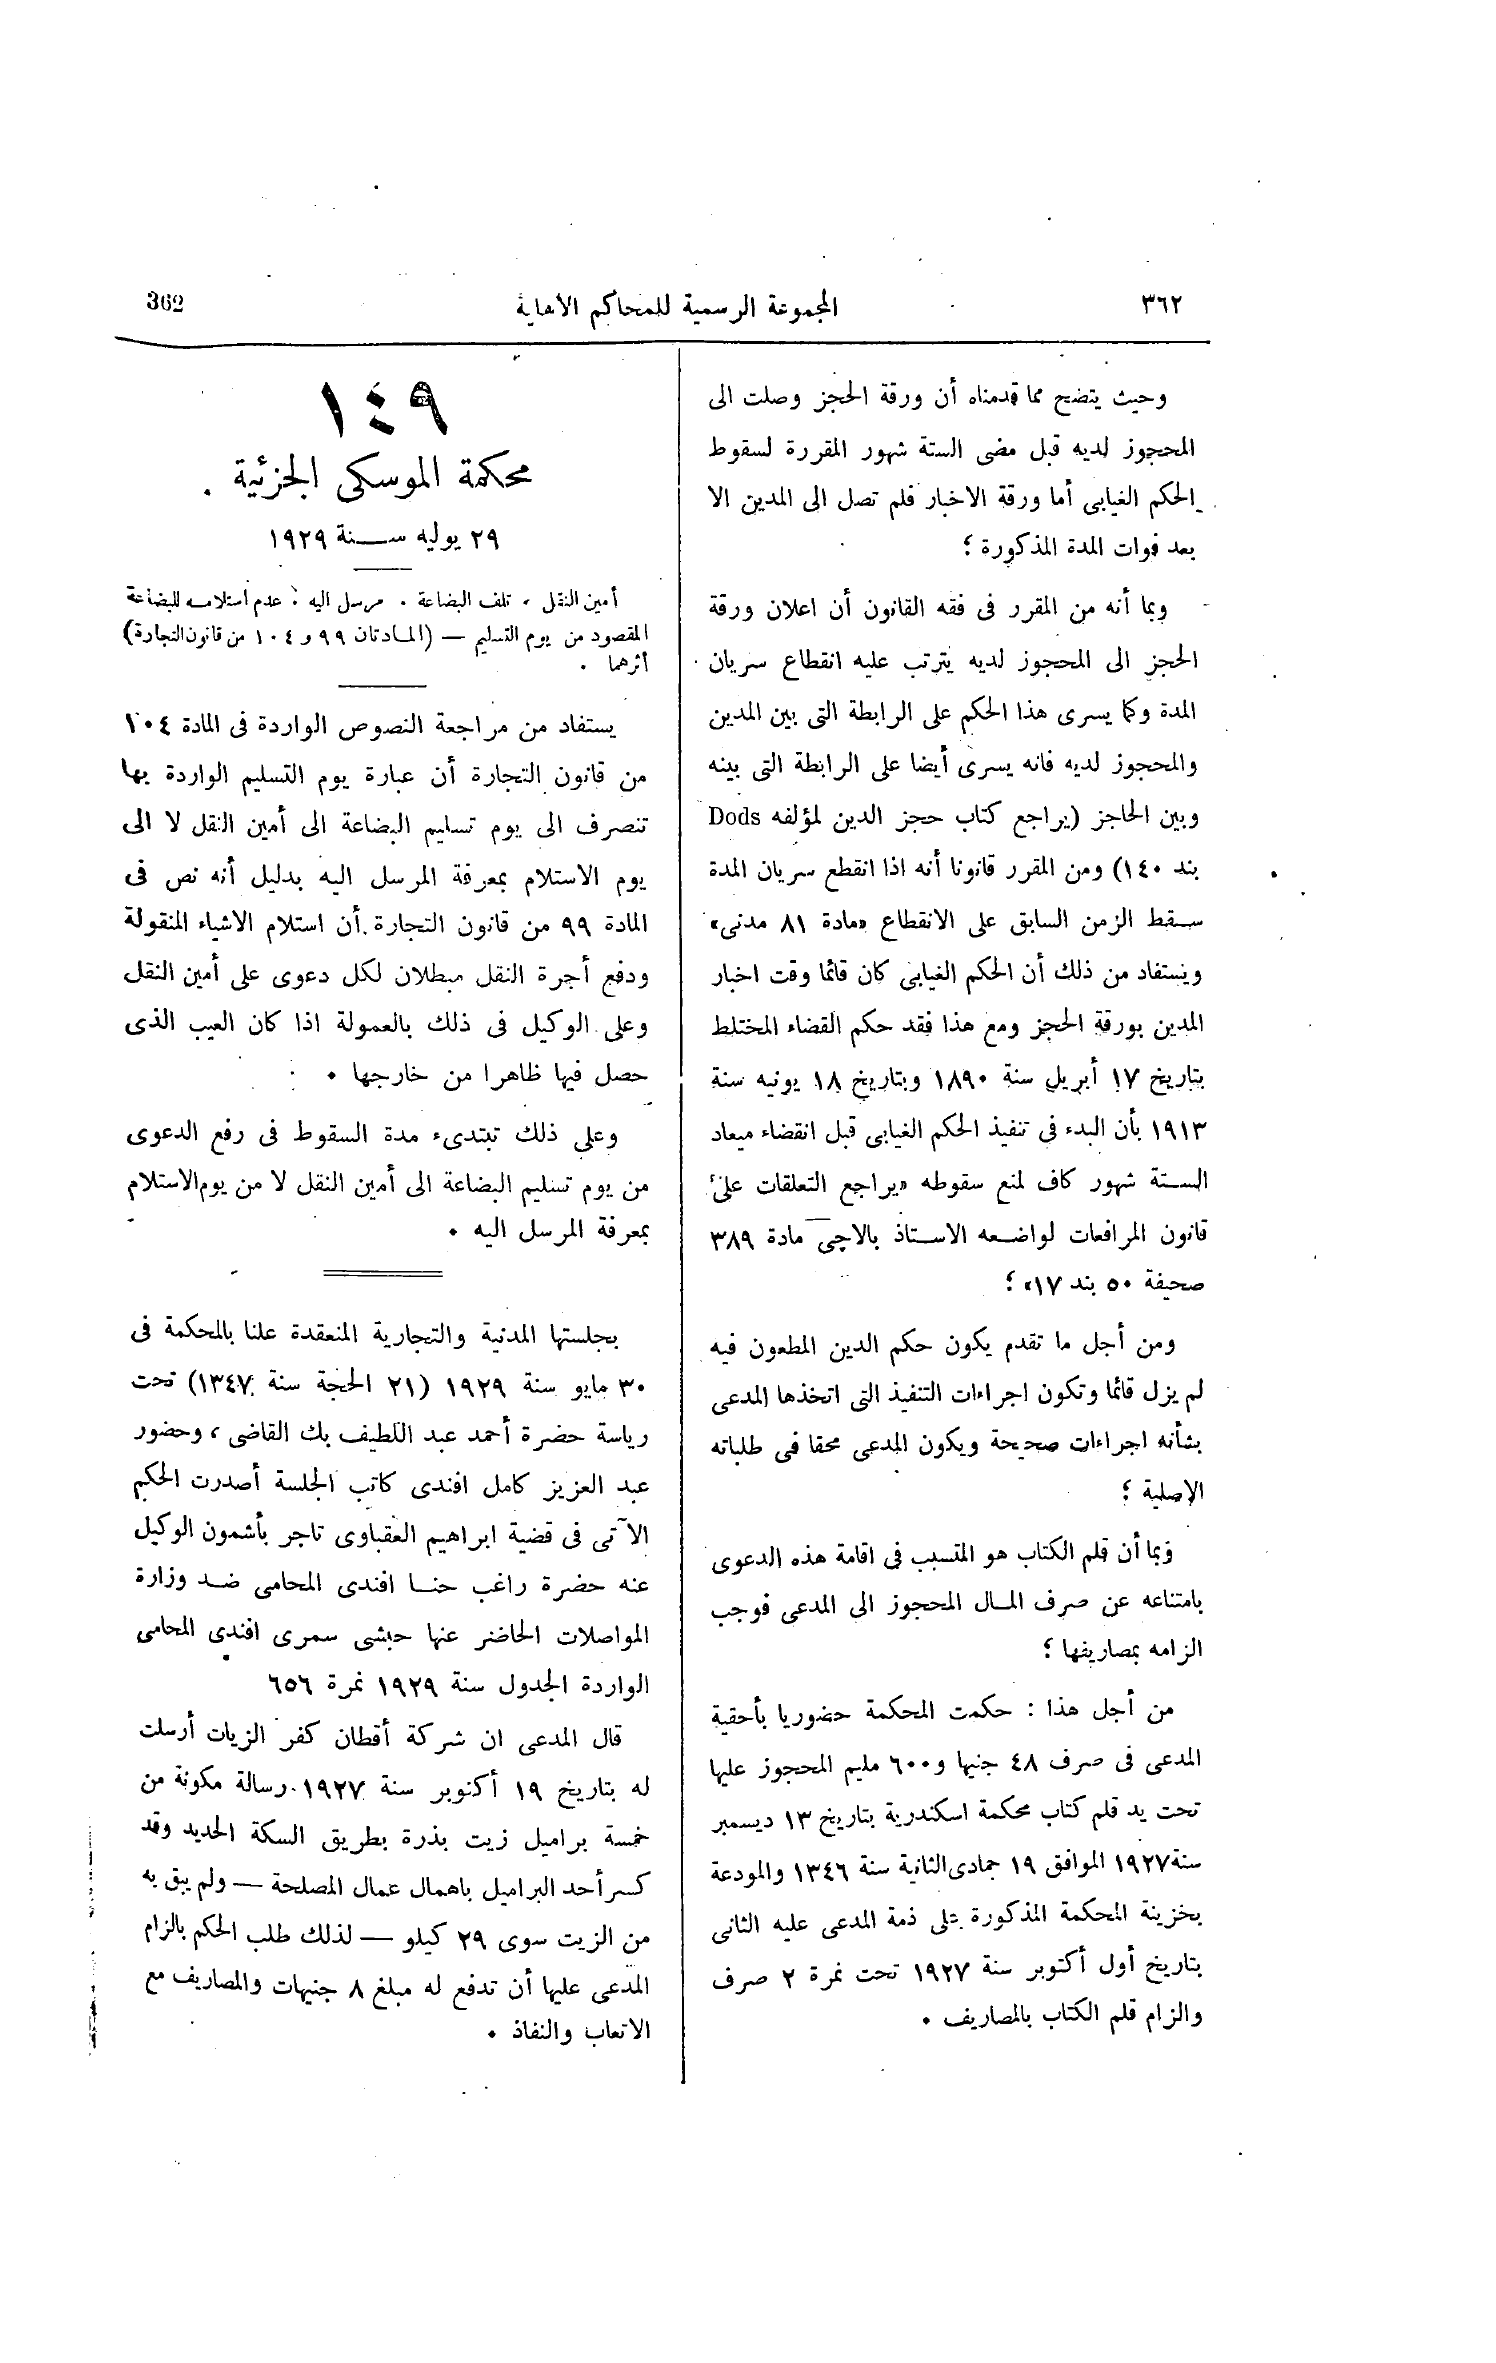 ٣٦٢
المجموعة الرسمية للمحاكم الأهلية
362
وحيث يتضح مما قدمناه أن ورقة الحجز وصلت الى
المحجوز لديه قبل مضى الستة شهور المقررة لسقوط
الحكم الغيابى أما ورقة الاخبار فلم تصل الى المدين الا
بعد فوات المدة المذكورة ؛
وبما أنه من المقرر فى فقه القانون أن اعلان ورقة
الحجز الى المحجوز لديه يترتب عليه انقطاع سريان
المدة وكما يسرى هذا الحكم على الرابطة التى بين المدين
والمحجوز لديه فانه يسرى أيضا على الرابطة التى بينه
وبين الحاجز (يراجع كتاب حجز الدين لمؤلفه Dods
بند ١٤٠) ومن المقرر قانونا أنه اذا انقطع سريان المدة
سقط الزمن السابق على الانقطاع «مادة ٨١ مدنى»
ويستفاد من ذلك أن الحكم الغيابى كان قائما وقت اخبار
المدين بورقة الحجز ومع هذا فقد حكم القضاء المختلط
بتاريخ ١٧ أبريل سنة ١٨٩٠ وبتاريخ ١٨ يونيه سنة
١٩١٣ بأن البدء فى تنفيذ الحكم الغيابى قبل انقضاء ميعاد
الستة شهور كاف لمنع سقوطه «يراجع التعلقات على
قانون المرافعات لواضعه الاستاذ بالاچى مادة ٣٨٩
صحيفة ٥٠ بند ١٧» ؛
ومن أجل ما تقدم يكون حكم الدين المطعون فيه
لم يزل قائما وتكون اجراءات التنفيذ التى اتخذها المدعى
بشأنه اجراءات صحيحة ويكون المدعى محقا فى طلباته
الاصلية ؛
وبما أن قلم الكتاب هو المتسبب فى اقامة هذه الدعوى
بامتناعه عن صرف المال المحجوز الى المدعى فوجب
الزامه بمصاريفها ؛
من أجل هذا : حكمت المحكمة حضوريا بأحقية
المدعى فى صرف ٤٨ جنيها و٦٠٠ مليم المحجوز عليها
تحت يد قلم كتاب محكمة اسكندرية بتاريخ ١٣ ديسمبر
سنة ١٩٢٧ الموافق ١٩ جمادى الثانية سنة ١٣٤٦ والمودعة
بخزينة المحكمة المذكورة على ذمة المدعى عليه الثانى
بتاريخ أول أكتوبر سنة ١٩٢٧ تحت نمرة ٢ صرف
والزام قلم الكتاب بالمصاريف .
١٤٩
محكمة الموسكى الجزئية .
٢٩ يوليه سنة ١٩٢٩
أمين النقل . تلف البضاعة . مرسل اليه . عدم استلامه للبضاعة
المقصود من يوم التسليم — (المادتان ٩٩ و ١٠٤ من قانون التجارة)
أثرهما .
يستفاد من مراجعة النصوص الواردة فى المادة ١٠٤
من قانون التجارة أن عبارة يوم التسليم الواردة بها
تنصرف الى يوم تسليم البضاعة الى أمين النقل لا الى
يوم الاستلام بمعرفة المرسل اليه بدليل أنه نص فى
المادة ٩٩ من قانون التجارة أن استلام الاشياء المنقولة
ودفع أجرة النقل مبطلان لكل دعوى على أمين النقل
وعلى الوكيل فى ذلك بالعمولة اذا كان العيب الذى
حصل فيها ظاهرا من خارجها .
وعلى ذلك تبتدىء مدة السقوط فى رفع الدعوى
من يوم تسليم البضاعة الى أمين النقل لا من يوم الاستلام
بمعرفة المرسل اليه .
بجلستها المدنية والتجارية المنعقدة علنا بالمحكمة فى
٣٠ مايو سنة ١٩٢٩ (٢١ الحجة سنة ١٣٤٧) تحت
رياسة حضرة أحمد عبد اللطيف بك القاضى ، وحضور
عبد العزيز كامل افندى كاتب الجلسة أصدرت الحكم
الآتى فى قضية ابراهيم العقباوى تاجر بأشمون الوكيل
عنه حضرة راغب حنا افندى المحامى ضد وزارة
المواصلات الحاضر عنها حبشى سمرى افندى المحامى
الواردة الجدول سنة ١٩٢٩ نمرة ٦٥٦
قال المدعى ان شركة أقطان كفر الزيات أرسلت
له بتاريخ ١٩ أكتوبر سنة ١٩٢٧ رسالة مكونة من
خمسة براميل زيت بذرة بطريق السكة الحديد وقد
كسر أحد البراميل باهمال عمال المصلحة — ولم يبق به
من الزيت سوى ٢٩ كيلو — لذلك طلب الحكم بالزام
المدعى عليها أن تدفع له مبلغ ٨ جنيهات والمصاريف مع
الاتعاب والنفاذ .